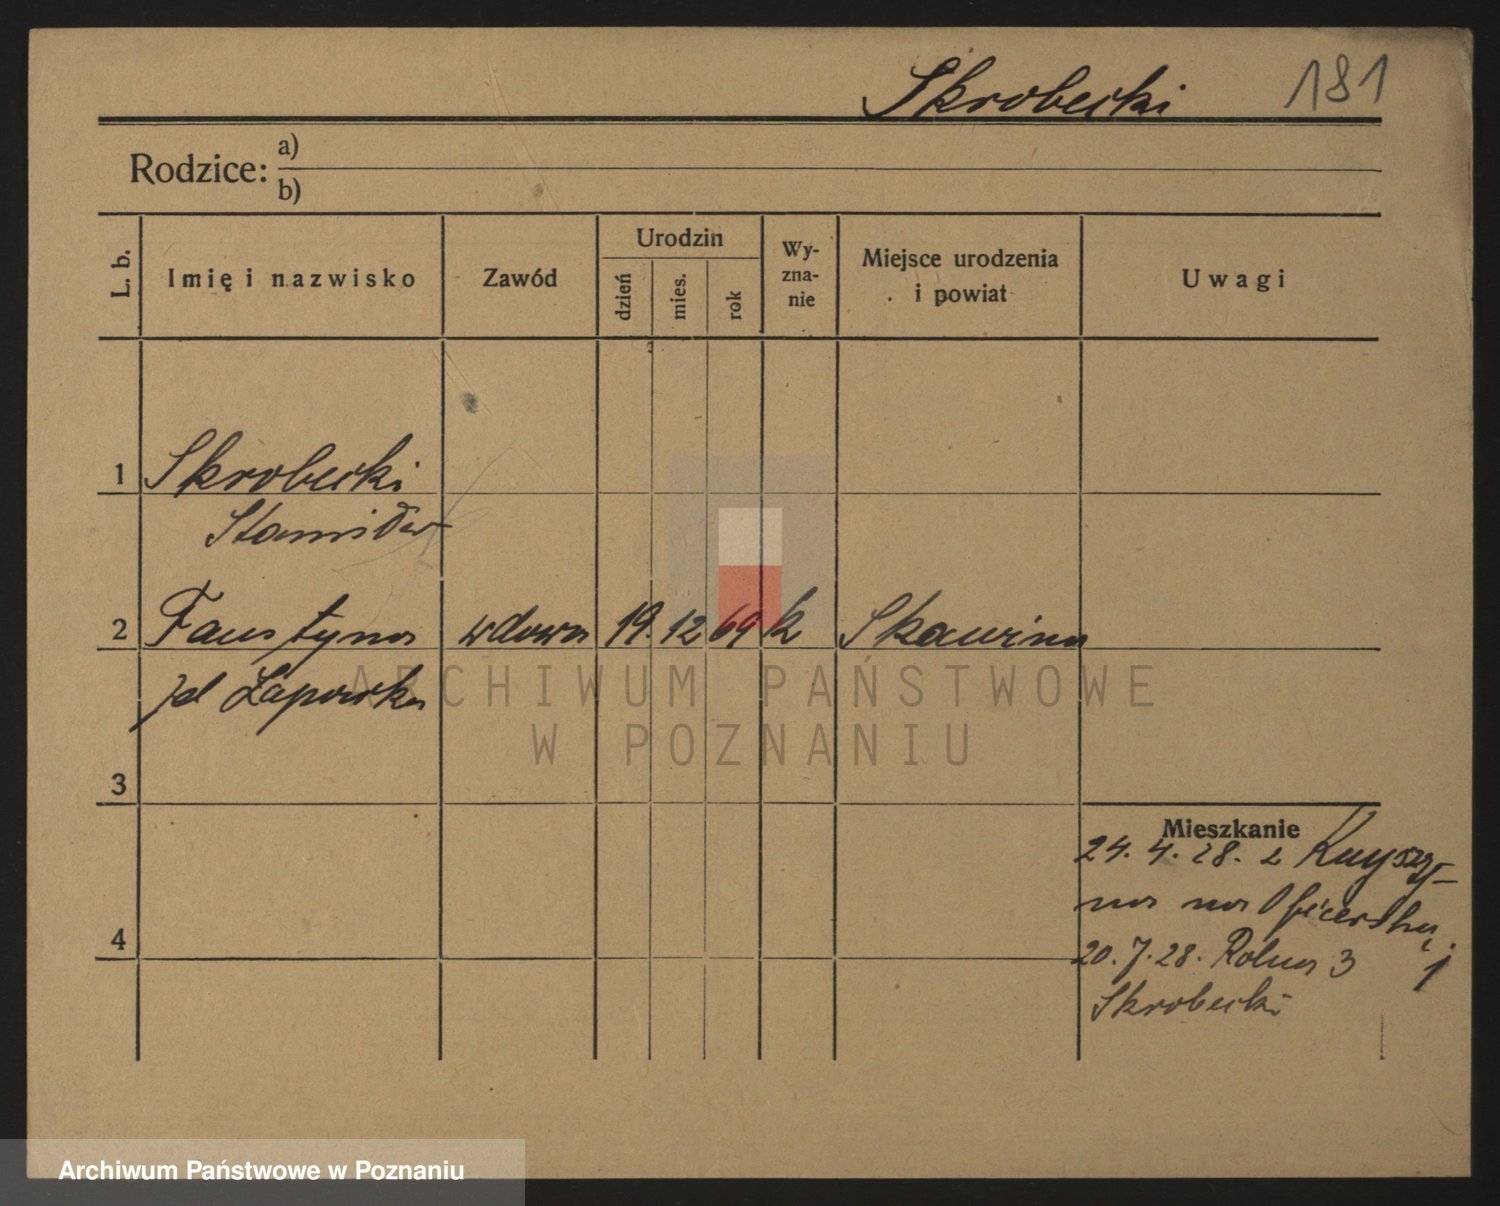 Skrobecki 181
Rodzice: a)
b)
L. b.
Imię i nazwisko
Zawód
Urodzin
dzień
mies.
rok
Wy-
zna-
nie
Miejsce urodzenia
i powiat
Uwagi
1 Skrobecki
Stanisław
2 Faustyna wdowa 19. 12 69 k Skawina
zd Łapowska
3
4
Mieszkanie
24. 4. 28. z Knyszy-
na na Oficerską
20. 7. 28. Rolna 3
Skrobecki
ARCHIWUM PAŃSTWOWE
W POZNANIU
Archiwum Państwowe w Poznaniu